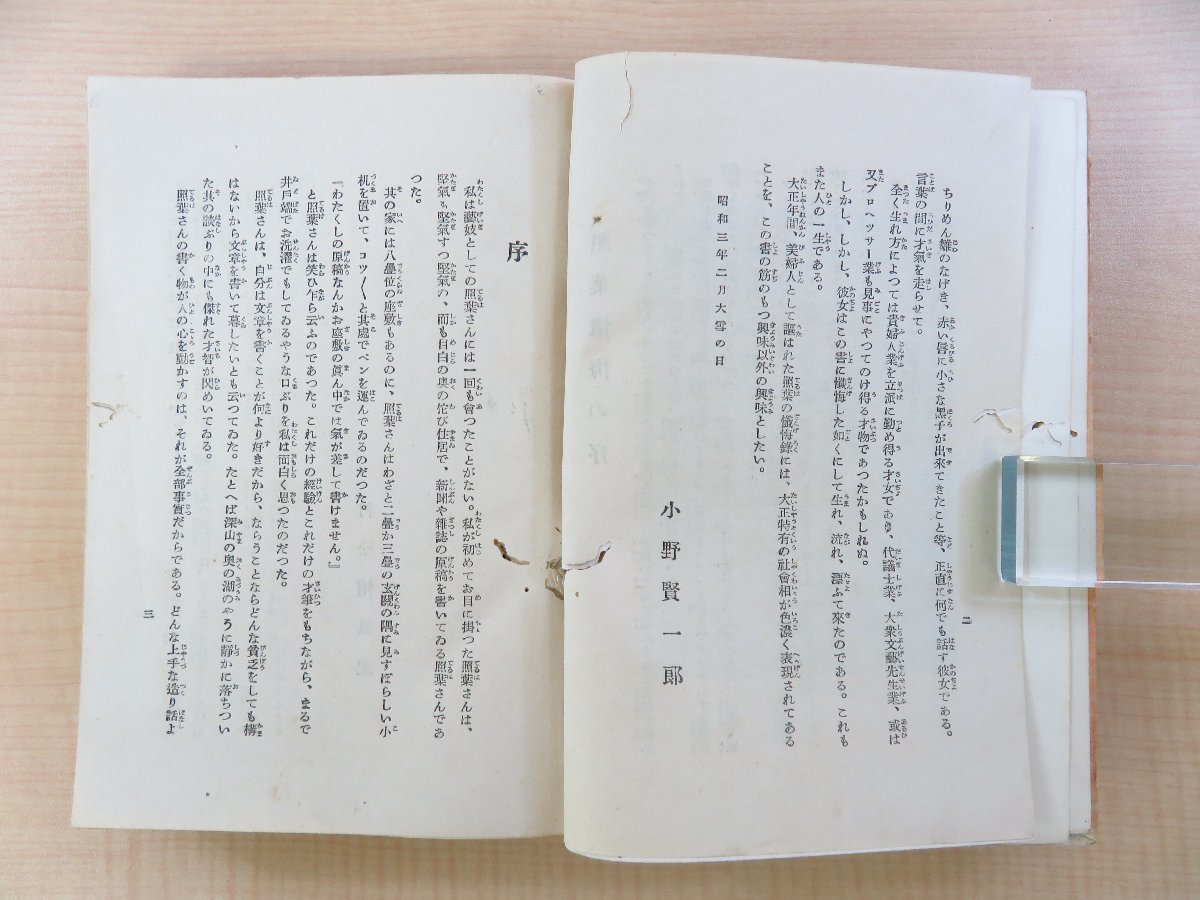 ちりめん雛のなげき、赤い唇に小さな黑子が出來てきたこと等、正直に何でも話す彼女である。
言葉の間に才氣を走らせて。
全く生れ方によつては貴婦人業を立派に勤め得る才女であり、代議士業、大衆文藝先生業、或は
又プロヘツサー業も見事にやつてのけ得る才物であつたかもしれぬ。
しかし、しかし、彼女はこの書に懺悔した如くにして生れ、流れ、漂ふて來たのである。これも
また人の一生である。
大正年間、美婦人として謳はれた照葉の懺悔錄には、大正特有の社會相が色濃く表現されてある
ことを、この書の筋のもつ興味以外の興味としたい。
昭和三年二月大雪の日
小野賢一郞
二
序
私は藝妓としての照葉さんには一回も會つたことがない。私が初めてお目に掛つた照葉さんは、
堅氣も堅氣すつ堅氣の、而も目白の奧の侘び住居で、新聞や雜誌の原稿を書いてゐる照葉さんであ
つた。
其の家には八疊位の座敷もあるのに、照葉さんはわざと二疊か三疊の玄關の隅に見すぼらしい小
机を置いて、コツ〳〵と其處でペンを運んでゐるのだつた。
『わたくしの原稿なんかお座敷の眞ん中では氣が差して書けません。』
と照葉さんは笑ひ乍ら云ふのであつた。これだけの經驗とこれだけの才筆をもちながら、まるで
井戶端でお洗濯でもしてゐるやうな口ぶりを私は面白く思つたのだつた。
照葉さんは、自分は文章を書くことが何より好きだから、ならうことならどんな貧乏をしても構
はないから文章を書いて暮したいとも云つてゐた。たとへば深山の奧の湖のやうに靜かに落ちつい
た其の談ぶりの中にも傑れた才智が閃めいてゐる。
照葉さんの書く物が人の心を動かすのは、それが全部事實だからである。どんな上手な造り話よ
三